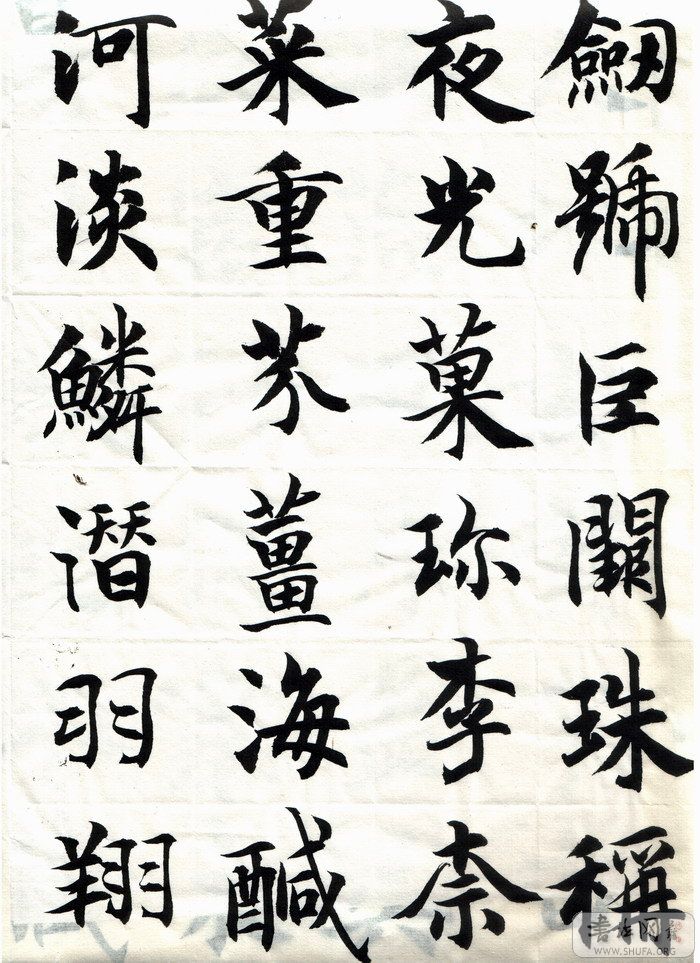 劔號巨闕珠稱
夜光菓珎李柰
菜重芥薑海醎
河淡鱗潛羽翔
书法网
WWW.SHUFA.ORG